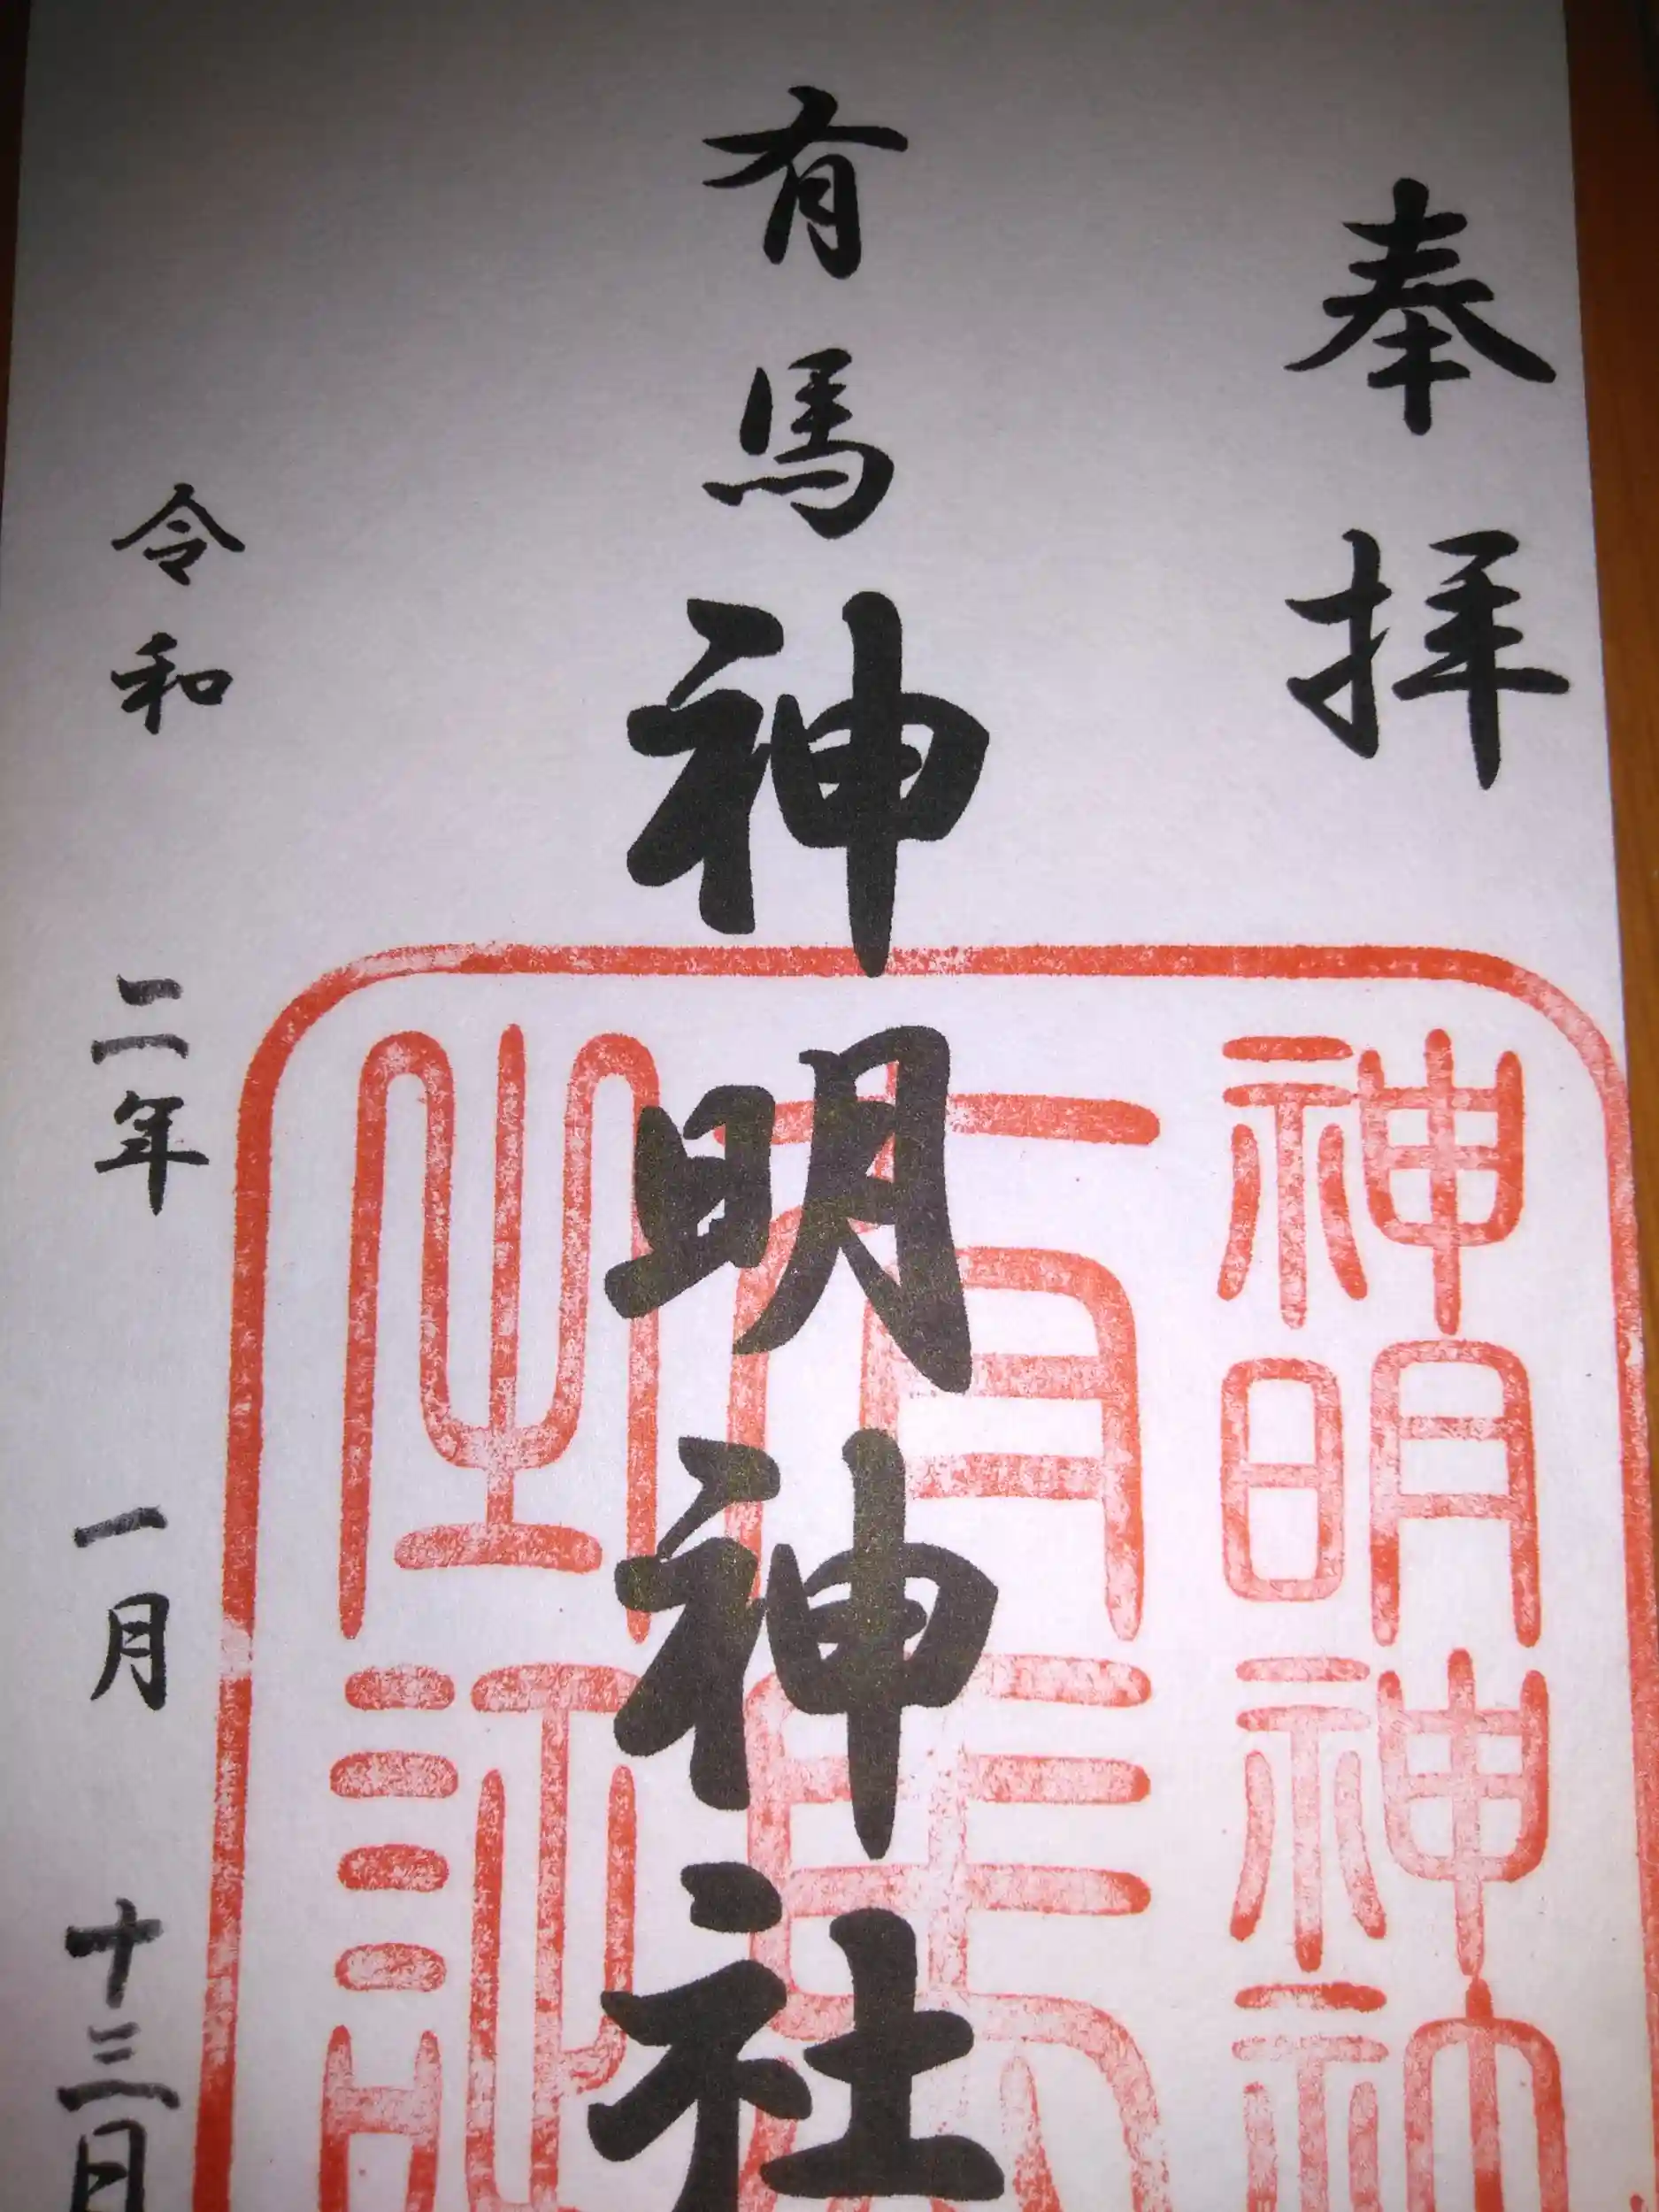 奉拝
有馬神明神社
令和二年一月十三日
神明神社
有馬
之証